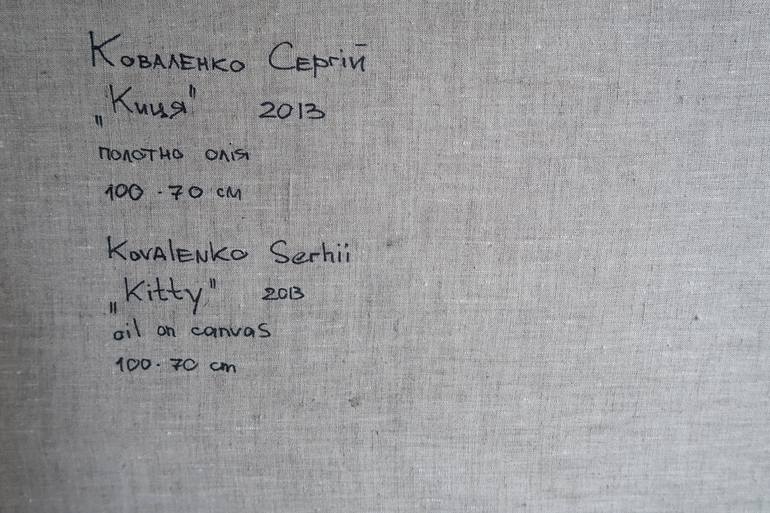 Коваленко Сергій
„Киця" 2013
полотно олія
100 · 70 см
Kovalenko Serhii
„Kitty" 2013
oil on canvas
100 · 70 cm